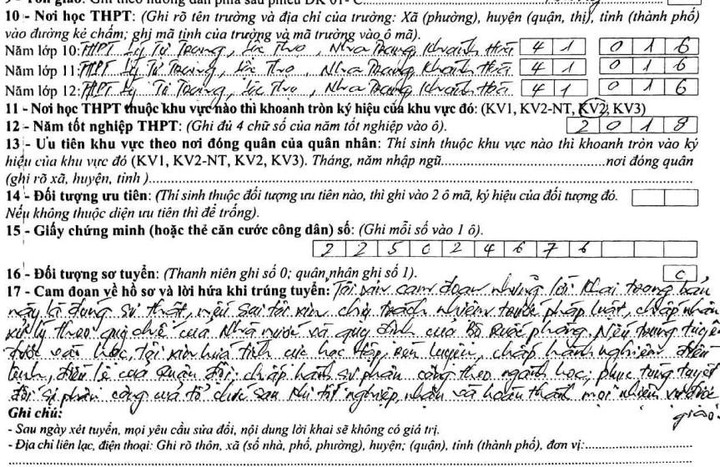 10 - Nơi học THPT: (Ghi rõ tên trường và địa chỉ của trường: Xã (phường), huyện (quận, thị), tỉnh (thành phố)
vào đường kẻ chấm; ghi mã tỉnh của trường và mã trường vào ô mã).
Năm lớp 10: THPT Lý Tự Trọng, Lộc Thọ, Nha Trang, Khánh Hòa 4 1 0 1 6
Năm lớp 11: THPT Lý Tự Trọng, Lộc Thọ, Nha Trang, Khánh Hòa 4 1 0 1 6
Năm lớp 12: THPT Lý Tự Trọng, Lộc Thọ, Nha Trang, Khánh Hòa 4 1 0 1 6
11 - Nơi học THPT thuộc khu vực nào thì khoanh tròn ký hiệu của khu vực đó: (KV1, KV2-NT, KV2, KV3)
12 - Năm tốt nghiệp THPT: (Ghi đủ 4 chữ số của năm tốt nghiệp vào ô). 2 0 1 8
13 - Ưu tiên khu vực theo nơi đóng quân của quân nhân: Thí sinh thuộc khu vực nào thì khoanh tròn vào ký
hiệu của khu vực đó (KV1, KV2-NT, KV2, KV3). Tháng, năm nhập ngũ nơi đóng quân
(ghi rõ xã, huyện, tỉnh)
14 - Đối tượng ưu tiên: (Thí sinh thuộc đối tượng ưu tiên nào, thì ghi vào 2 ô mã, ký hiệu của đối tượng đó.
Nếu không thuộc diện ưu tiên thì để trống).
15 - Giấy chứng minh (hoặc thẻ căn cước công dân) số: (Ghi mỗi số vào 1 ô).
2 2 5 0 2 4 6 7 6
16 - Đối tượng sơ tuyển: (Thanh niên ghi số 0; quân nhân ghi số 1). 0
17 - Cam đoan về hồ sơ và lời hứa khi trúng tuyển: Tôi xin cam đoan những lời khai trong bản
này là đúng sự thật, nếu sai tôi xin chịu trách nhiệm trước pháp luật, chấp nhận
xử lý theo quy chế của Nhà nước và quy định của Bộ Quốc phòng. Nếu trúng tuyển
được vào học, tôi xin hứa tích cực học tập, rèn luyện, chấp hành nghiêm điều
lệnh, điều lệ của Quân đội; chấp hành sự phân công theo ngành học; phục tùng tuyệt
đối sự phân công của tổ chức sau khi tốt nghiệp, nhận và hoàn thành mọi nhiệm vụ được
giao.
Ghi chú:
- Sau ngày xét tuyển, mọi yêu cầu sửa đổi, nội dung lời khai sẽ không có giá trị.
- Địa chỉ liên lạc, điện thoại: Ghi rõ thôn, xã (số nhà, phố, phường), huyện; (quận), tỉnh (thành phố), đơn vị: